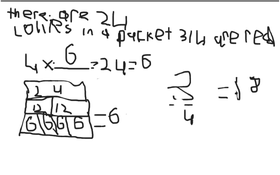 there are 24
Lollies in a packet 3/4 are red
4 x 6 = 24 = 6
2 4
12 12
6 6 6 6 = 6
3/4 = 18